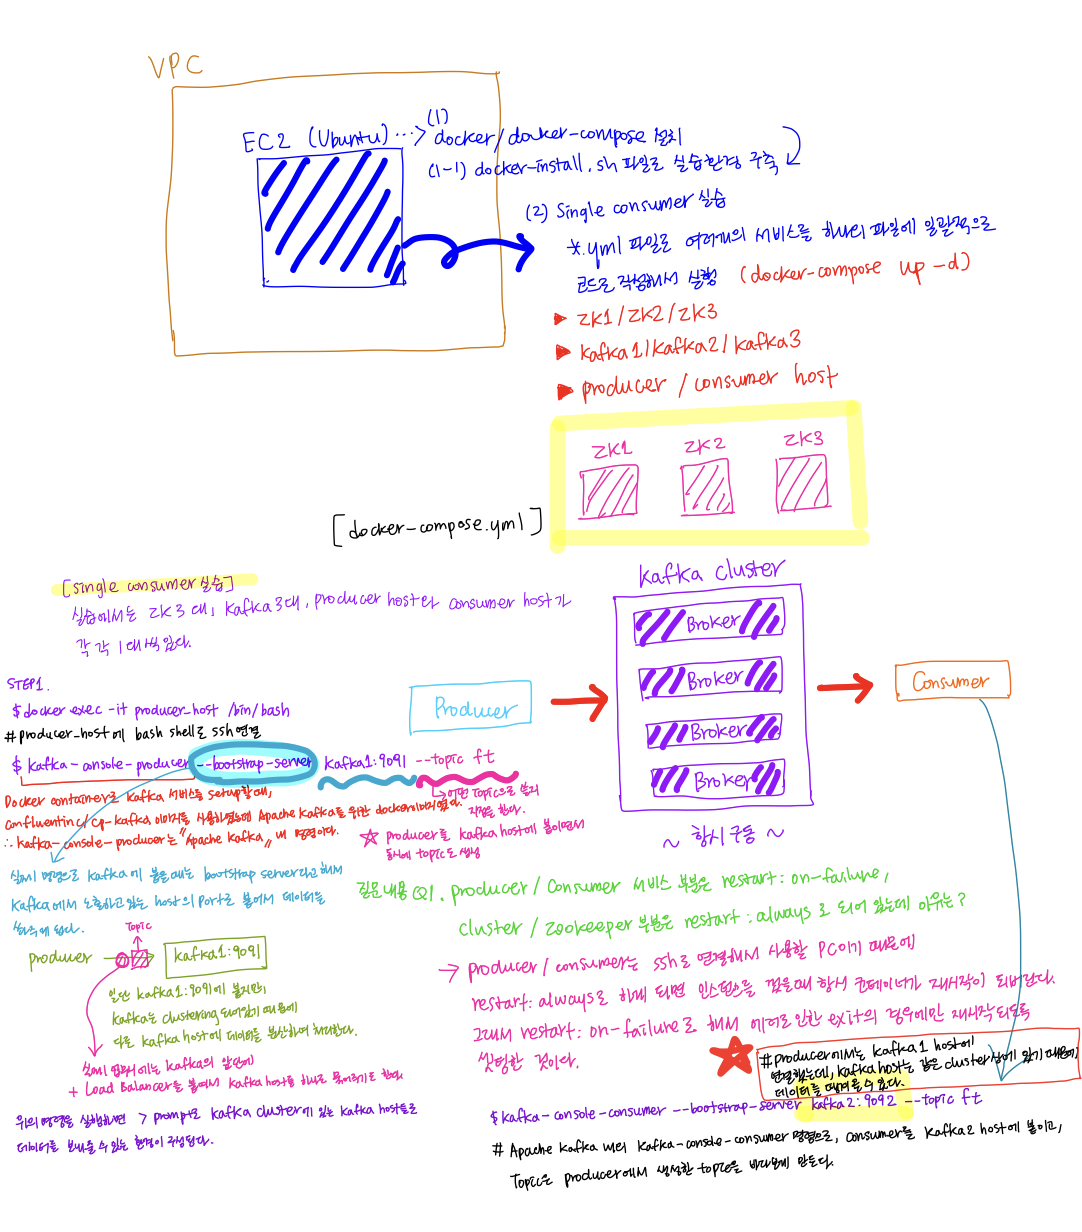 VPC
EC2 (Ubuntu) ...>
(1)
docker/docker-compose 설치
(1-1) docker-install.sh 파일로 실습환경 구축
(2) Single consumer 실습
*.yml 파일로 여러개의 서비스를 하나의 파일에 일괄적으로
코드로 작성해서 실행 (docker-compose up -d)
▶ zk1/zk2/zk3
▶ kafka1/kafka2/kafka3
▶ producer / consumer host
zk1 zk2 zk3
[docker-compose.yml]
[single consumer 실습]
실습에서는 zk 3대, kafka 3대, producer host와 consumer host가
각각 1대씩 있다.
kafka cluster
Broker
Broker
Broker
Broker
~ 항시 구동 ~
Producer
Consumer
STEP1.
$ docker exec -it producer_host /bin/bash
# producer-host에 bash shell로 ssh연결
$ kafka-console-producer --bootstrap-server kafka1:9091 --topic ft
Docker container로 kafka 서비스를 setup할 때,
confluentinc/cp-kafka 이미지를 사용하였는데 Apache kafka를 위한 docker이미지였다.
∴ kafka-console-producer는 "Apache kafka" 내 명령이다.
어떤 topic으로 쏠지
지정을 한다.
☆ producer를 kafka host에 붙이면서
동시에 topic도 생성
실제 명령으로 kafka에 붙을때는 bootstrap server라고 해서
kafka에서 노출하고 있는 host의 port로 붙어서 데이터를
topic
producer
kafka1:9091
일단 kafka1:9091에 붙지만,
kafka는 clustering 되어있기 때문에
다른 kafka host에 데이터를 분산하여 처리한다.
실제 업무에는 kafka의 앞단에
+ Load Balancer를 붙여서 kafka host를 하나로 묶어주기도 한다.
위의 명령을 실행하면 > prompt로 kafka cluster에 있는 kafka host들로
데이터를 보낼 수 있는 환경이 구성된다.
질문내용 Q1. producer / consumer 서비스 부분은 restart: on-failure,
cluster / zookeeper 부분은 restart: always로 되어 있는데 이유는?
→ producer / consumer는 ssh로 연결해서 사용할 PC이기 때문에
restart: always로 하게 되면 인스턴스를 껐을때 항시 컨테이너가 재시작이 되버린다.
그래서 restart: on-failure로 해서 에러로 인한 exit의 경우에만 재시작되도록
셋팅한 것이다.
# producer에서는 kafka1 host에
연결했는데, kafka host는 같은 cluster상에 있기 때문에,
데이터를 땡겨올 수 있다.
$ kafka-console-consumer --bootstrap-server kafka2:9092 --topic ft
# Apache kafka 내의 kafka-console-consumer 명령으로, consumer를 kafka2 host에 붙이고,
Topic은 producer에서 생성한 topic을 바라보게 만든다.